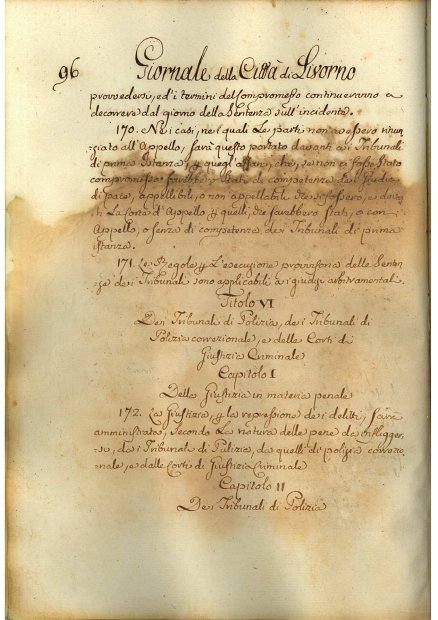 96 Giornale della Città di Livorno
provvedersi, ed'i termini del compromesso continueranno a
decorrere dal giorno della Sentenza sull'incidente.
170. Nei casi, nei quali Le parti non avessero rinun
ziato all'Appello, sarà questo portato davanti ai Tribunali
di prima Istanza, p quegl'affari, che, se non vi fosse stato
compromesso sarebbero stati di competenza dei Giudici
di pace, appellibili, o non appellabili che si fossero, e davan
ti La Corte di Appello p quelli, che sarebbero stati, o con
Appello, o senza di competenza dei Tribunali di prima
istanza.
171. Le Regole p L'esecuzione provvisoria delle Senten
ze dei Tribunali sono applicabili ai giudizj arbitramentali.
Titolo VI
Dei Tribunali di Polizia, dei Tribunali di
Polizia correzionale, e delle Corti di
Giustizia Criminale
Capitolo I
Della Giustizia in materia penale
172. La Giustizia, p la repressione dei delitti, sarà
amministrata, secondo La natura delle pene da infligger
si, dai Tribunali di Pulizia, da quelli di polizia correzio
nale, e dalle Corti di Giustizia Criminale
Capitolo II
Dei Tribunali di Polizia